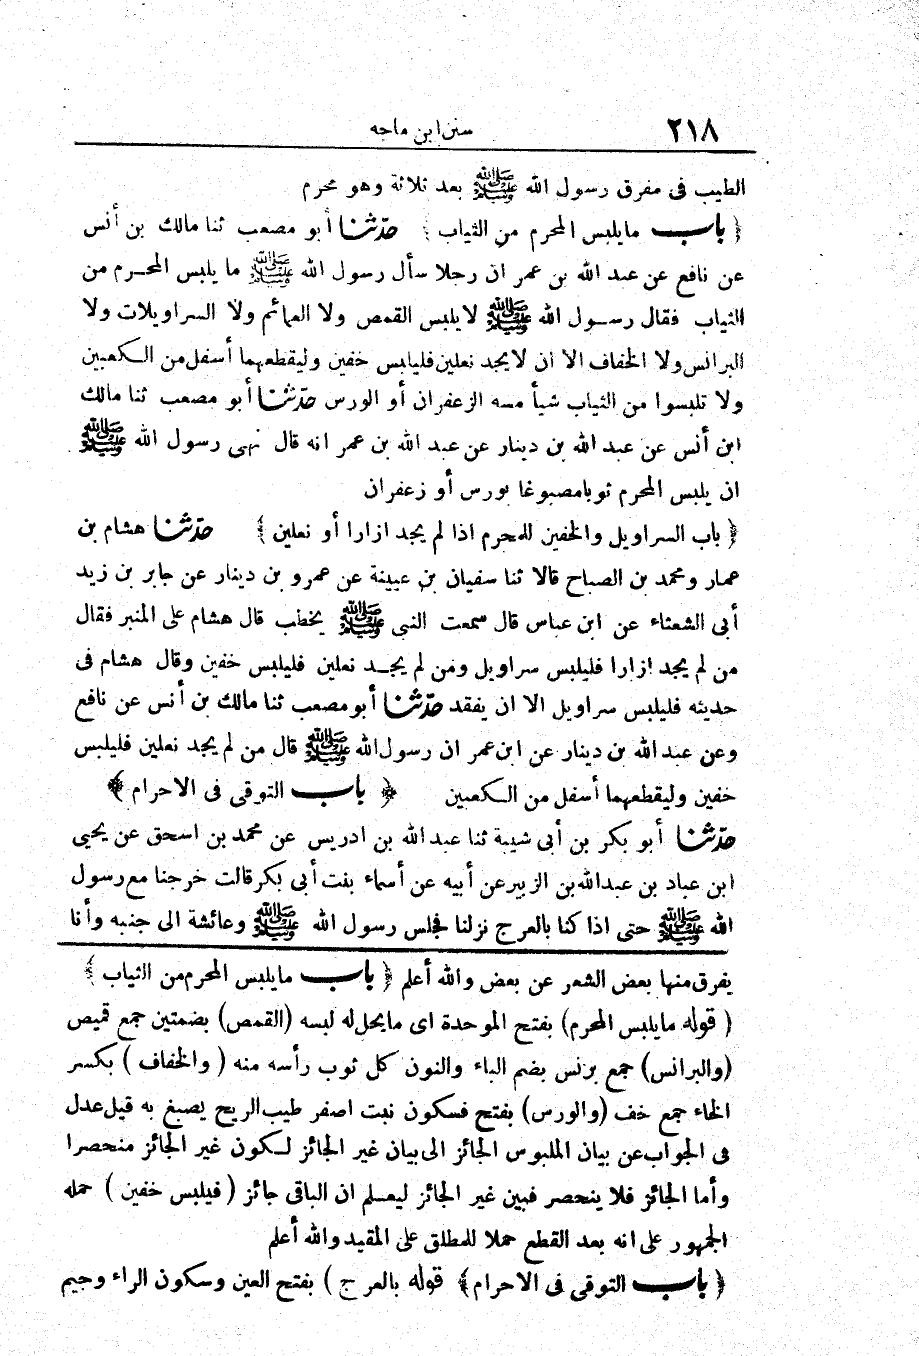 ٢١٨
سنن ابن ماجه
الطيب فى مفرق رسول الله ﷺ بعد ثلاثة وهو محرم
﴿ باب مايلبس المحرم من الثياب ﴾ حدّثنا أبو مصعب ثنا مالك بن أنس
عن نافع عن عبد الله بن عمر ان رجلا سأل رسول الله ﷺ ما يلبس المحرم من
الثياب فقال رسول الله ﷺ لايلبس القمص ولا العمائم ولا السراويلات ولا
البرانس ولا الخفاف الا ان لايجد نعلين فليلبس خفين وليقطعهما أسفل من الكعبين
ولا تلبسوا من الثياب شيأ مسه الزعفران أو الورس حدّثنا أبو مصعب ثنا مالك
ابن أنس عن عبد الله بن دينار عن عبد الله بن عمر انه قال نهى رسول الله ﷺ
ان يلبس المحرم ثوبا مصبوغا بورس أو زعفران
﴿ باب السراويل والخفين للمحرم اذا لم يجد ازارا أو نعلين ﴾ حدّثنا هشام بن
عمار ومحمد بن الصباح قالا ثنا سفيان بن عيينة عن عمرو بن دينار عن جابر بن زيد
أبى الشعثاء عن ابن عباس قال سمعت النبى ﷺ يخطب قال هشام على المنبر فقال
من لم يجد ازارا فليلبس سراويل ومن لم يجد نعلين فليلبس خفين وقال هشام فى
حديثه فليلبس سراويل الا ان يفقد حدّثنا أبو مصعب ثنا مالك بن أنس عن نافع
وعن عبد الله بن دينار عن ابن عمر ان رسول الله ﷺ قال من لم يجد نعلين فليلبس
خفين وليقطعهما أسفل من الكعبين ﴿ باب التوقى فى الاحرام ﴾
حدّثنا أبو بكر بن أبى شيبة ثنا عبد الله بن ادريس عن محمد بن اسحق عن يحيى
ابن عباد بن عبد الله بن الزبير عن أبيه عن أسماء بنت أبى بكر قالت خرجنا مع رسول
الله ﷺ حتى اذا كنا بالعرج نزلنا فجلس رسول الله ﷺ وعائشة الى جنبه وأنا
يفرق منها بعض الشعر عن بعض والله أعلم ﴿ باب مايلبس المحرم من الثياب ﴾
( قوله مايلبس المحرم) بفتح الموحدة اى مايحل له لبسه (القمص) بضمتين جمع قميص
(والبرانس) جمع برنس بضم الباء والنون كل ثوب رأسه منه ( والخفاف ) بكسر
الخاء جمع خف (والورس) بفتح فسكون نبت اصفر طيب الريح يصبغ به قيل عدل
فى الجواب عن بيان الملبوس الجائز الى بيان غير الجائز لكون غير الجائز منحصرا
وأما الجائز فلا ينحصر فبين غير الجائز ليعلم ان الباقى جائز ( فيلبس خفين ) حمله
الجمهور على انه بعد القطع حملا للمطلق على المقيد والله أعلم
﴿ باب التوقى فى الاحرام﴾ قوله بالعرج ) بفتح العين وسكون الراء وجيم